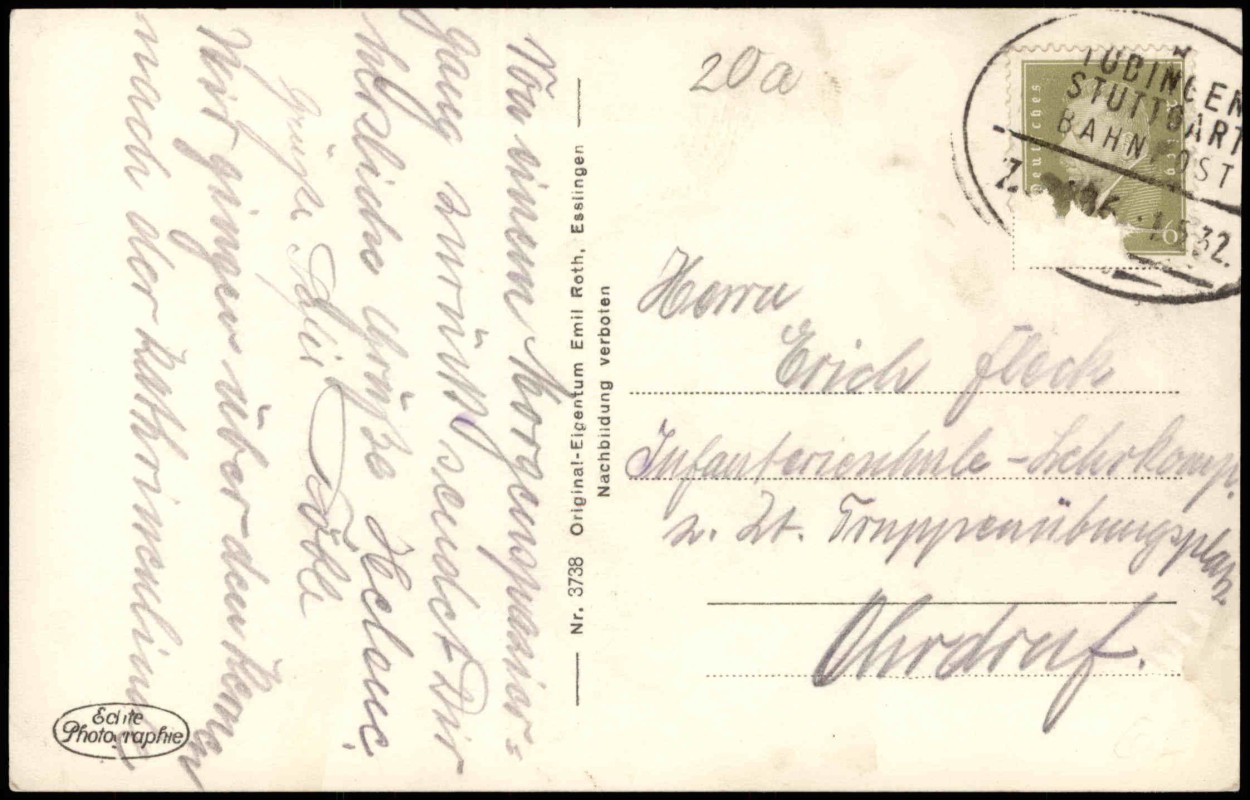 Von einem Morgenspazier=
gang zurück sendet Dir
herzliche Grüße Helene
Grüße
Wir gingen über den Kernen
nach der Kathrinenlinde
Nr. 3738 Original-Eigentum Emil Roth, Esslingen
Nachbildung verboten
Echte
Photographie
20a
TÜBINGEN
STUTTGART
BAHNPOST
Z. 1.5.32.
Deutsches
Reich
6
Herrn
Erich Fleck
Infanterieschule-Lehrkomp.
z. Zt. Truppenübungsplatz
Ohrdruf.